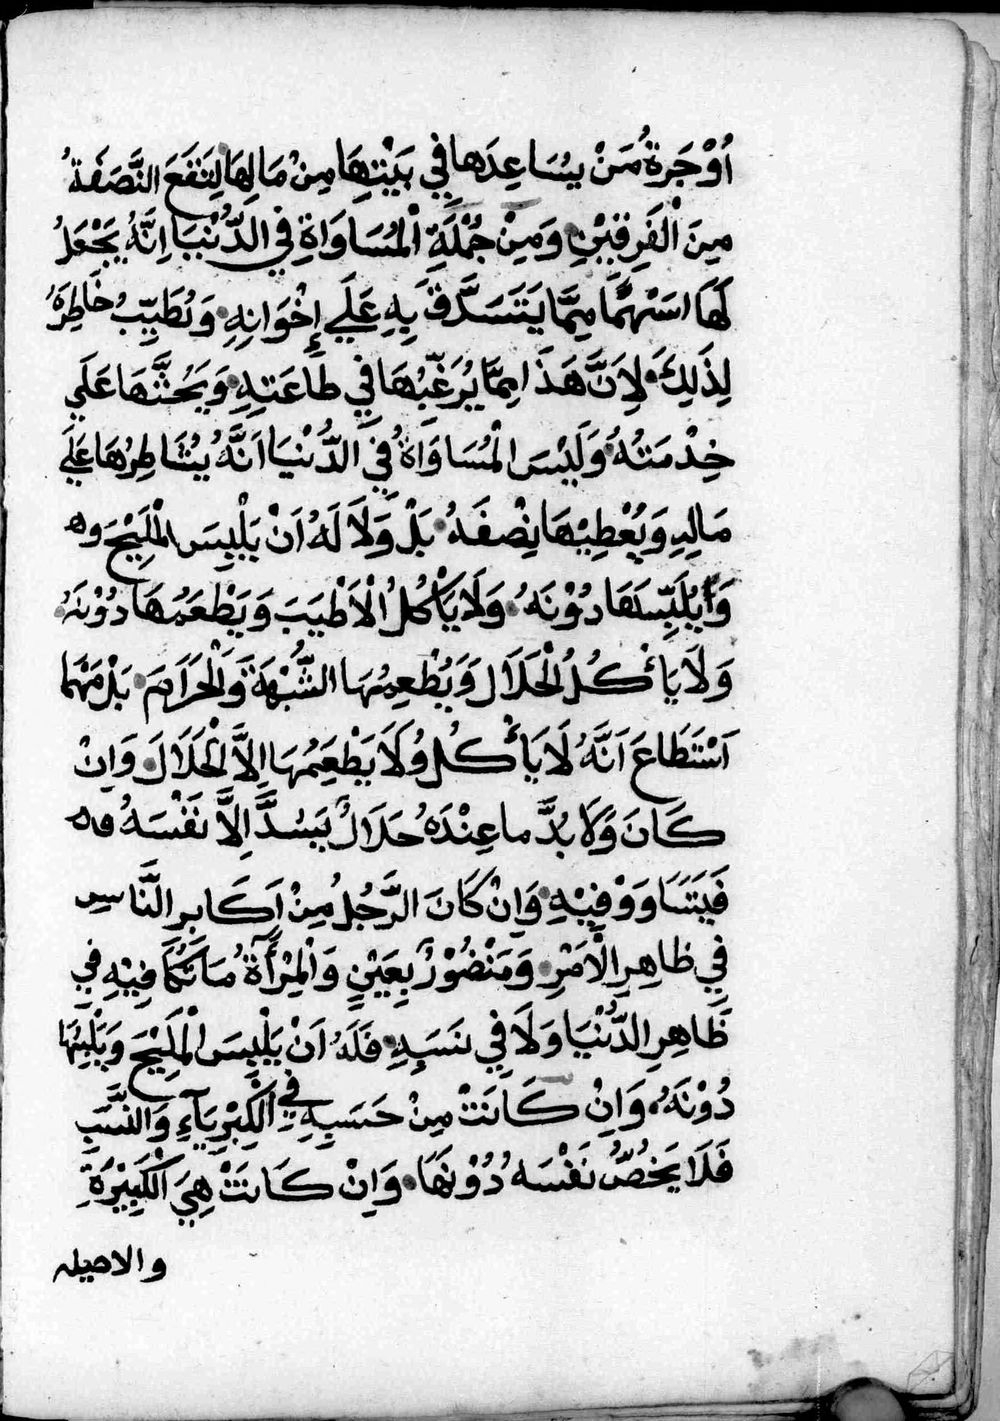 اُوْجَرَةُ مَنْ يسُاَعِدَها فِي بَيْتِهَا مِنْ مَالِهَا لِتَقَعَ النَّصَفَةُ
مِنَ الْفَرِقَيْنِ وَمِنْ جُمْلَةِ الْمُسَاوَاةِ فِي الدُّنْيَا اِنَّهُ يَجْعَلُ
لَهَا اسَهْمًا مِمَّا يَتَسَدَّقْ بِهِ عَلَي إِخْوَانِهِ وَيُطَيِّبُ خَاطِرَهُ
لِذَلِكَ لِاَنَّ هَذَا مِمَّا يُرَغِّبُهَا فِي طاعَتِهِ وَيَحُثُّهَا عَلَي
خِدْمَتُهُ وَلَيْسَ الْمُسَاوَاةُ فِي الدُّنْيَا اَنَّهُ يُشَاطِرُهَا عَلَي
مَالِهِ وَيُعْطِيْهَا نِصْفَهُ بَلْ وَلَا لَهُ اَنْ يَلْبِسَ الْمَلِيْحَ وه
وَيُلَبِّسَهَا دُوْنَهُ وَلَا يَأْكُلُ الْاَطْيَبَ وَيَطْعَمُهَا دُوْنَهُ
وَلَا يَأْكُلُ الْحَلَالَ وَيُطْعِمُهَا الشُّبْهَةَ وَالْحَرَامَ بَلْ مَهْمَا
اَسْتَطَاعَ اَنَّهُ لَا يَأْكُلُ وُلَا يَطْعَمُهَا اِلاَّ الْحَلَالَ وَاِنْ
كَانَ وَلَا بُدَّ ما عِنْدَهُ حَلَالٌ يَسُدَّ اِلاَّ نَفْسَهُ
فَيَتَسَاوَوْ فِيْهِ وَاِنْ كَانَ الرَّجُلُ مِنْ اَكَابِرِ النَّاسِ
فِي ظاهِرِ الْاَمْرِ وَمَنْضُوْرٌ بِعَيْنٍ وَالْمِرْأَةُ مَاتَمَّا فِيْهِ فِي
ظَاهِرِ الدُّنْيَا وَلَا فِي نَسَبِهِ فَلَهُ اَنْ يَلْبِسَ الْمَلِيْحَ وَيَلْبِسُهَا
دُوْنَهُ وَاِنْ كَانَتْ مِنْ حَسَبِهِ فِي الْكِبْرِيَآءِ وَالنَّسَبِ
فَلَا يَخُصُّ نَفْسَهُ دُوْنَهَا وَاِنْ كَانَتْ هِيَ الْكَبِيْرَةِ
والاصيله